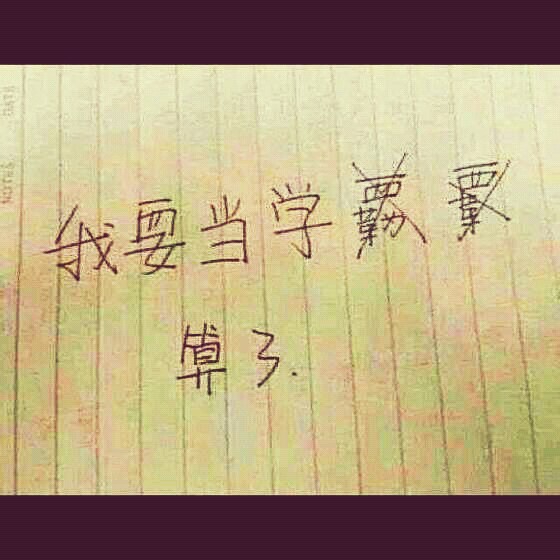 我要当学
算了.
DATE
NOTES